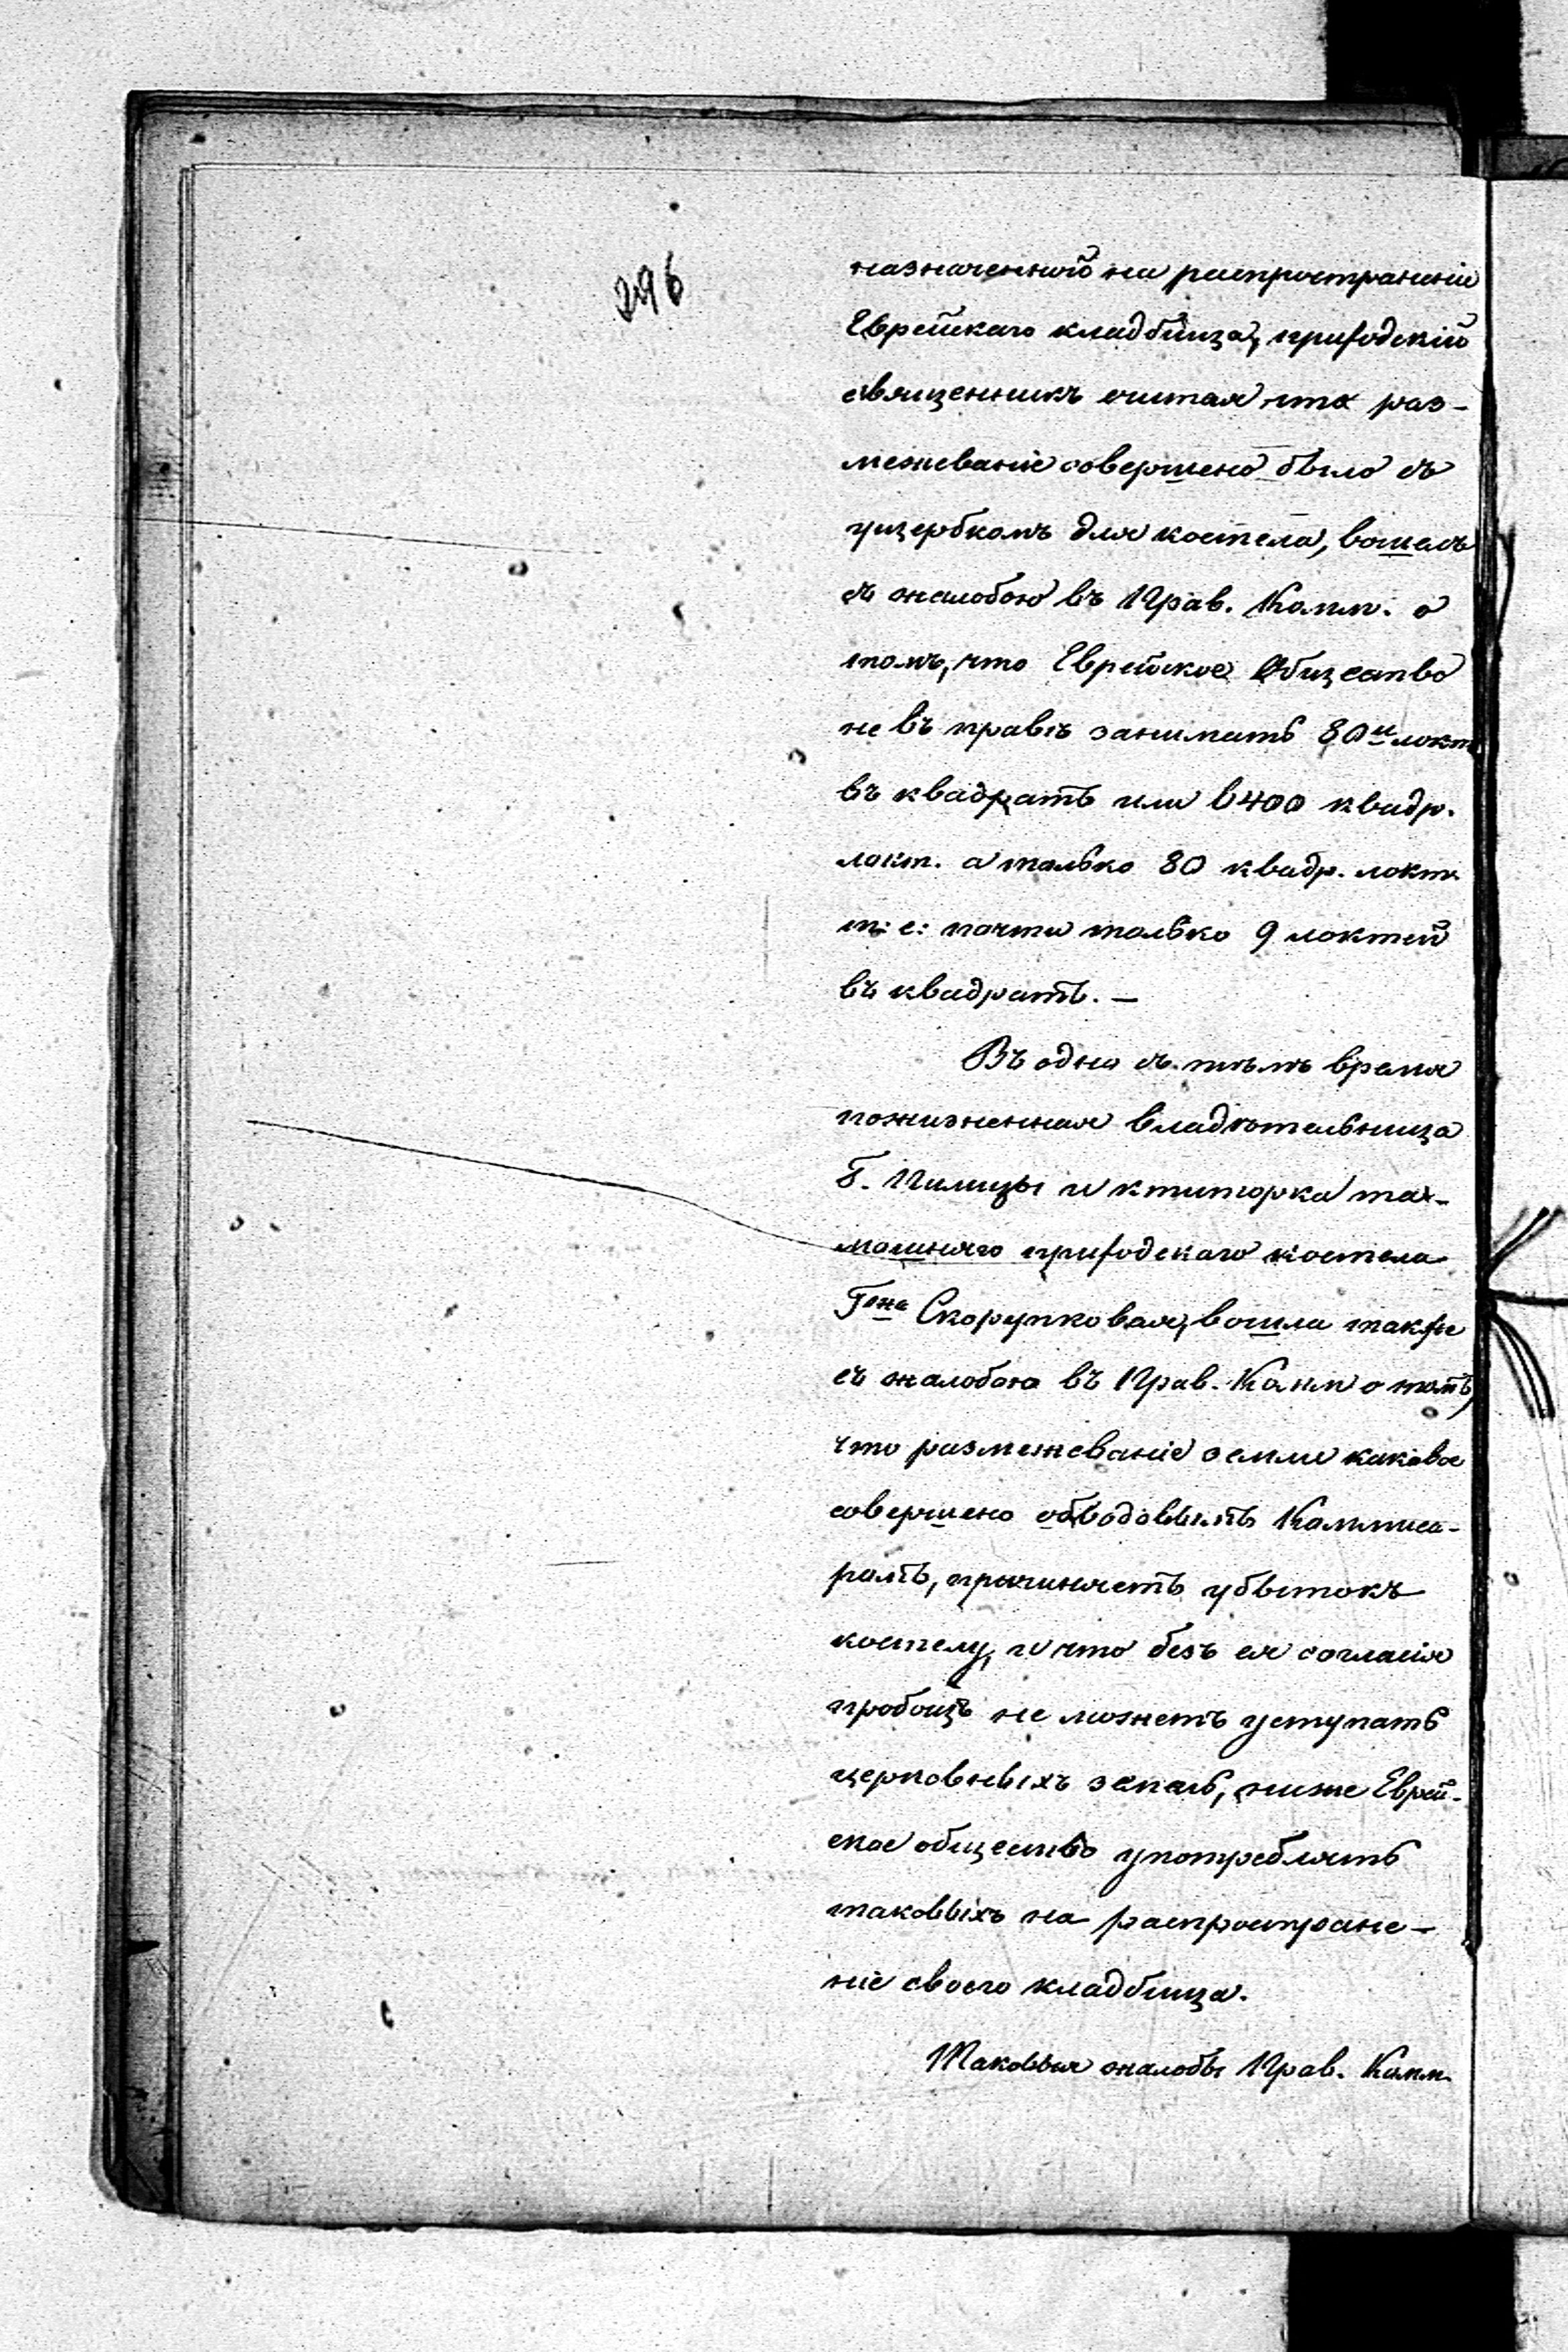 296
назначенной на распространеніе
Еврейскаго кладбища, приходскій
священникъ считая что раз-
межеваніе совершено было съ
ущербкомъ для костела, вошелъ
съ жалобою въ Прав. Комм. о
томъ, что Еврейское Общество
не въ правѣ занимать 80и локт
въ квадратъ или 6400 квадр.
локт. а только 80 квадр. локт.
т: е: почти только 9 локтей
въ квадратѣ. —
Въ одно съ тѣмъ время
пожизненная владѣтельница
Г. Пилицы и ктиторка та-
машняго приходскаго костела
Гжа Скорупковая, вошла также
съ жалобою въ Прав. Комм о томъ,
что размежеваніе земли каковое
совершено обводовымъ Коммиса-
ромъ, причиняетъ убытокъ
костелу, и что безъ ея согласія
пробощъ не можетъ уступать
церковныхъ земель, ниже Еврей-
ское общество употреблять
таковыхъ на распростране-
ніе своего кладбища.
Таковыя жалобы Прав. Комм.